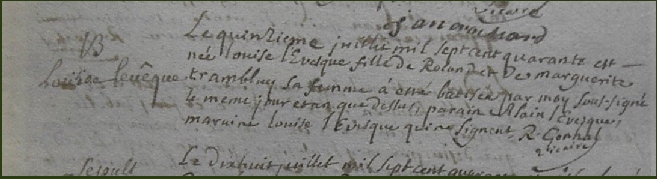 vicaire
B
Louise levêque
Le quinzieme juillet mil sept cent quarante est
née louise l'Evesque fille de Roland et De marguerite
trambluy sa femme a été batisée par moy sous-signé
le meme jour et an que dessus parain Alain l'evesque,
maraine louise l'Evesque qui ne signent, R.
vicaire
Le dixhuit juillet mil sept cent